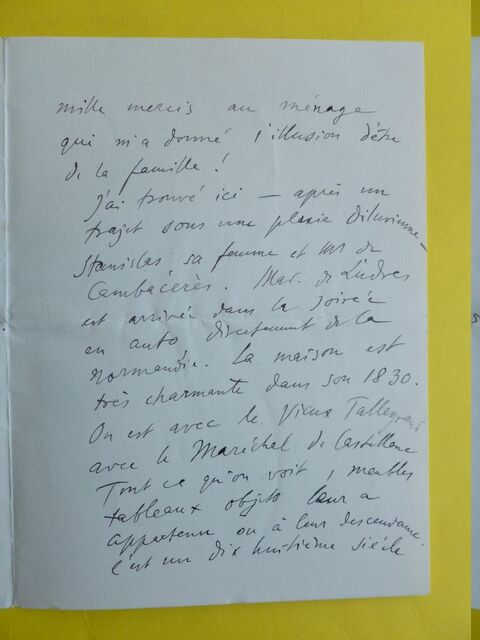 mille mercis au ménage
qui m'a donné l'illusion d'être
de la famille !
J'ai trouvé ici — après un
trajet sous une pluie diluvienne —
Stanislas sa femme et Mr de
Cambacérès. Mad. de Ludres
est arrivée dans la soirée
en auto directement de la
Normandie. La maison est
très charmante dans son 1830.
On est avec le Vieux Talleyrand
avec le Maréchal de Castellane
Tout ce qu'on voit, meubles
tableaux objets leur a
appartenu ou à leur descendance.
C'est un dix huitième siècle